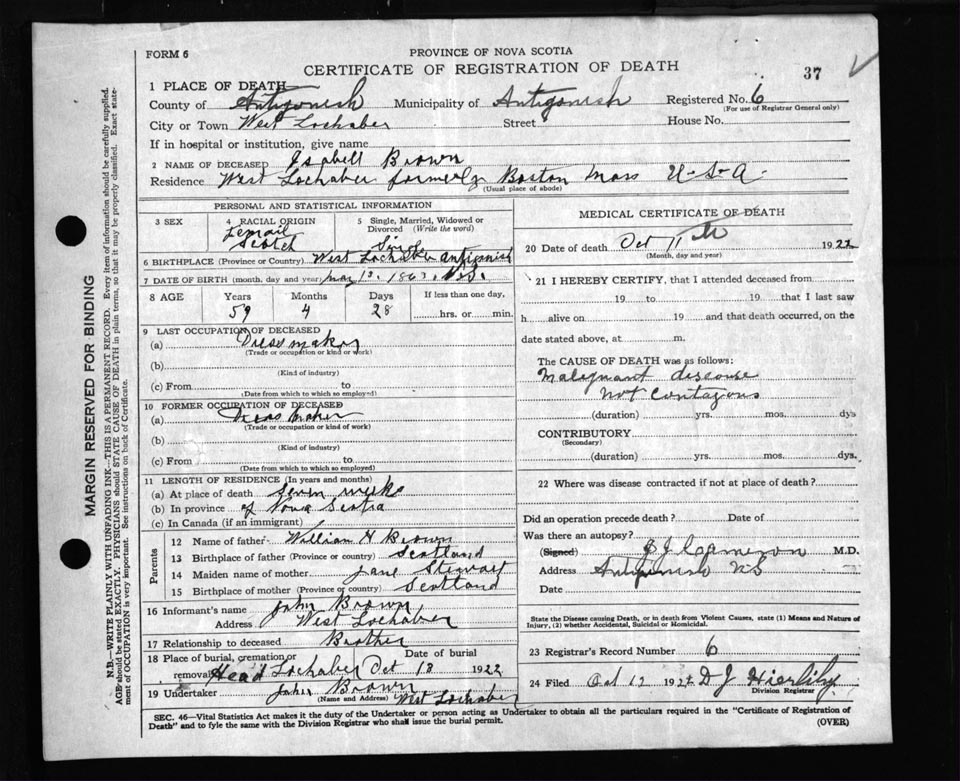 FORM 6
PROVINCE OF NOVA SCOTIA
CERTIFICATE OF REGISTRATION OF DEATH
37
1 PLACE OF DEATH
County of Antigonish Municipality of Antigonish Registered No. 6
(For use of Registrar General only)
City or Town West Lochaber Street House No.
If in hospital or institution, give name
2 NAME OF DECEASED Isabell Brown
Residence West Lochaber formerly Boston Mass U-S-A-
(Usual place of abode)
PERSONAL AND STATISTICAL INFORMATION
3 SEX 4 RACIAL ORIGIN 5 Single, Married, Widowed or Divorced (Write the word)
Femail Scotch Single
6 BIRTHPLACE (Province or Country) West Lochaber Antigonish
7 DATE OF BIRTH (month, day and year) 1863 N.S.
8 AGE Years Months Days If less than one day,
59 4 28 hrs. or min.
9 LAST OCCUPATION OF DECEASED
(a) Dressmaker
(Trade or occupation or kind or work)
(b)
(Kind of industry)
(c) From to
(Date from which to which so employed)
10 FORMER OCCUPATION OF DECEASED
(a) Dress maker
(Trade or occupation or kind of work)
(b)
(Kind of industry)
(c) From to
(Date from which to which so employed)
11 LENGTH OF RESIDENCE (In years and months)
(a) At place of death Seven weeks
(b) In province of Nova Scotia
(c) In Canada (if an immigrant)
Parents
12 Name of father William H Brown
13 Birthplace of father (Province or country) Scotland
14 Maiden name of mother Jane Stewart
15 Birthplace of mother (Province or country) Scotland
16 Informant's name John Brown
Address West Lochaber
17 Relationship to deceased Brother
18 Place of burial, cremation or removal Date of burial
Head Lochaber Oct 13 1922
19 Undertaker John Brown West Lochaber
(Name and Address)
MEDICAL CERTIFICATE OF DEATH
20 Date of death Oct 11th 1922
(Month, day and year)
21 I HEREBY CERTIFY, that I attended deceased from
19 to 19 that I last saw
h alive on 19 and that death occurred, on the
date stated above, at m.
The CAUSE OF DEATH was as follows:
Malignant disease
not Contagious
(duration) yrs. mos. dys
CONTRIBUTORY
(Secondary)
(duration) yrs. mos. dys.
22 Where was disease contracted if not at place of death?
Did an operation precede death? Date of
Was there an autopsy?
(Signed) J J Cameron M.D.
Address Antigonish N S
Date
State the Disease causing Death, or in death from Violent Causes, state (1) Means and Nature of
Injury, (2) whether Accidental, Suicidal or Homicidal.
23 Registrar's Record Number 6
24 Filed Oct 12 1922 D J Hierlihy
Division Registrar
SEC. 46—Vital Statistics Act makes it the duty of the Undertaker or person acting as Undertaker to obtain all the particulars required in the "Certificate of Registration of
Death" and to fyle the same with the Division Registrar who shall issue the burial permit.
(OVER)
MARGIN RESERVED FOR BINDING
N.B.—WRITE PLAINLY WITH UNFADING INK—THIS IS A PERMANENT RECORD. Every item of information should be carefully supplied.
AGE should be stated EXACTLY. PHYSICIANS should STATE CAUSE OF DEATH in plain terms, so that it may be properly classified. Exact state-
ment of OCCUPATION is very important. See instructions on back of Certificate.